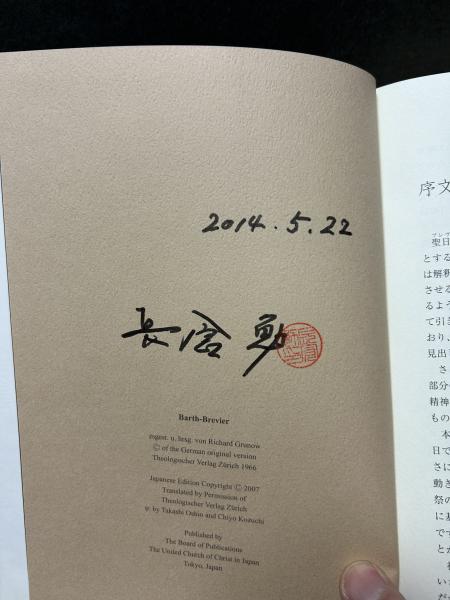 2014.5.22
長倉 勉
Barth-Brevier
zsgest. u. hrsg. von Richard Grunow
© of the German original version
Theologischer Verlag Zürich 1966
Japanese Edition Copyright © 2007
Translated by Permission of
Theologischer Verlag Zürich
tr. by Takashi Oshio and Chiyo Kozuchi
Published by
The Board of Publications
The United Church of Christ in Japan
Tokyo, Japan
序文
聖日
とする
は解釈
させる
るよう
て引き
おり、
見出
さ
部分
精神
もの
本
日で
さに
動き
祭の
に基
です
とか